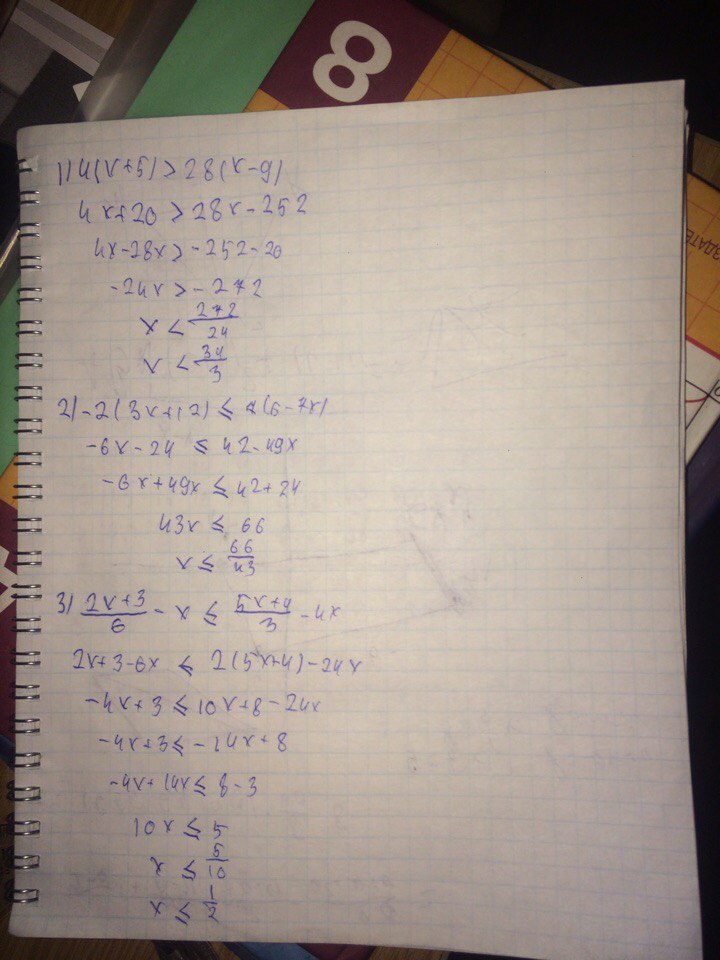 8
ЗДАТЕ
1) 4(x+5) > 28(x-9)
4x+20 > 28x-252
4x-28x > -252-20
-24x > -272
x < 272/24
x < 34/3
2) -2(3x+12) ≤ 7(6-7x)
-6x-24 ≤ 42-49x
-6x+49x ≤ 42+24
43x ≤ 66
x ≤ 66/43
3) (2x+3)/6 - x ≤ (5x+4)/3 - 4x
2x+3-6x ≤ 2(5x+4)-24x
-4x+3 ≤ 10x+8-24x
-4x+3 ≤ -14x+8
-4x+14x ≤ 8-3
10x ≤ 5
x ≤ 5/10
x ≤ 1/2